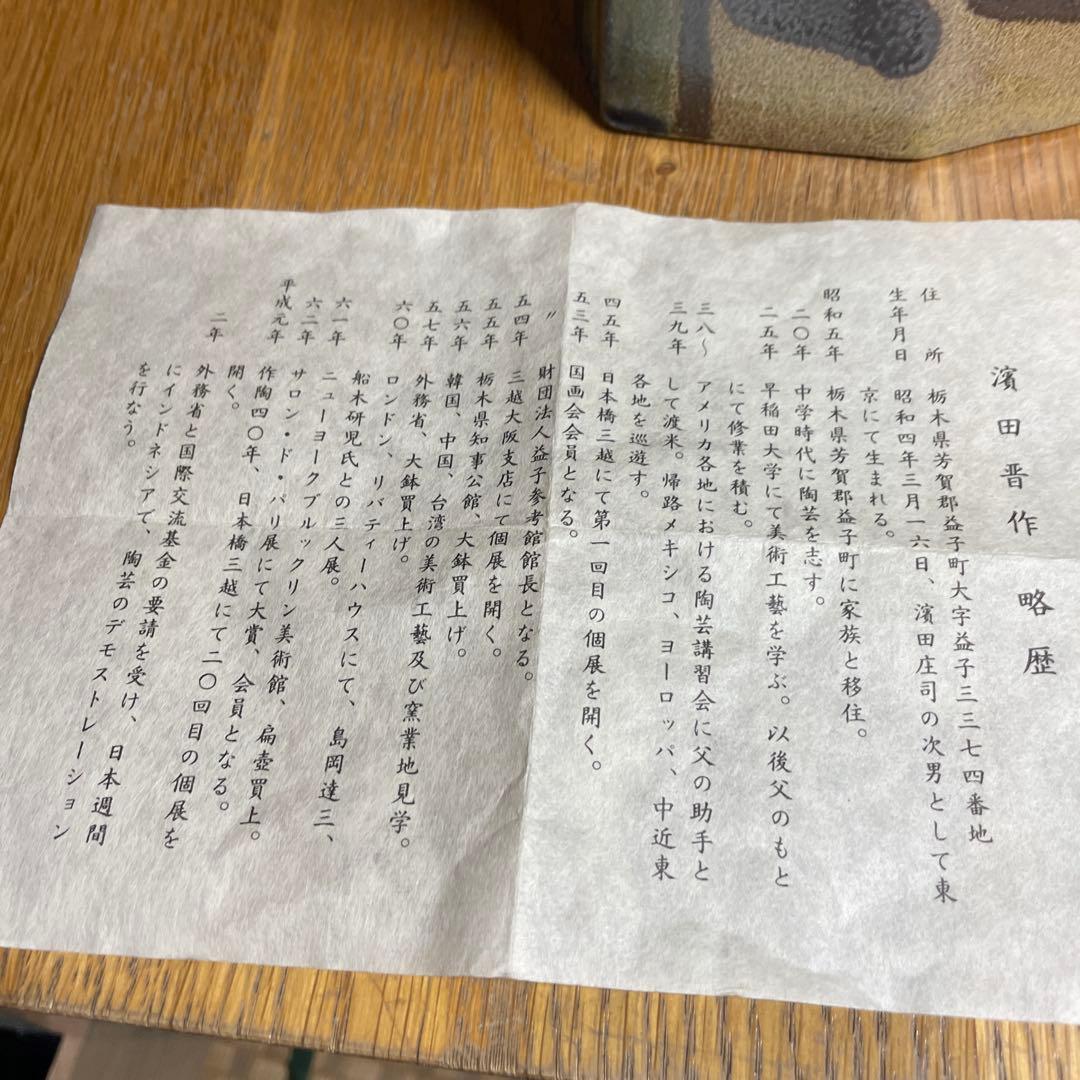 濱田晋作 略歴
住所 栃木県芳賀郡益子町大字益子三三七四番地
生年月日 昭和四年三月一六日、濱田庄司の次男として東
京にて生まれる。
昭和五年 栃木県芳賀郡益子町に家族と移住。
二〇年 中学時代に陶芸を志す。
二五年 早稲田大学にて美術工藝を学ぶ。以後父のもと
にて修業を積む。
三八〜 アメリカ各地における陶芸講習会に父の助手と
三九年 して渡米。帰路メキシコ、ヨーロッパ、中近東
各地を巡遊す。
四五年 日本橋三越にて第一回目の個展を開く。
五三年 国画会会員となる。
〃 財団法人益子参考館館長となる。
五四年 三越大阪支店にて個展を開く。
五五年 栃木県知事公館、大鉢買上げ。
五六年 韓国、中国、台湾の美術工藝及び窯業地見学。
五七年 外務省、大鉢買上げ。
六〇年 ロンドン、リバティーハウスにて、島岡達三、
船木研児氏との三人展。
六一年 ニューヨークブルックリン美術館、扁壺買上。
六二年 サロン・ド・パリ展にて大賞、会員となる。
平成元年 作陶四〇年、日本橋三越にて二〇回目の個展を
開く。
二年 外務省と国際交流基金の要請を受け、日本週間
にインドネシアて 陶芸のデモストレーション
を行なう。